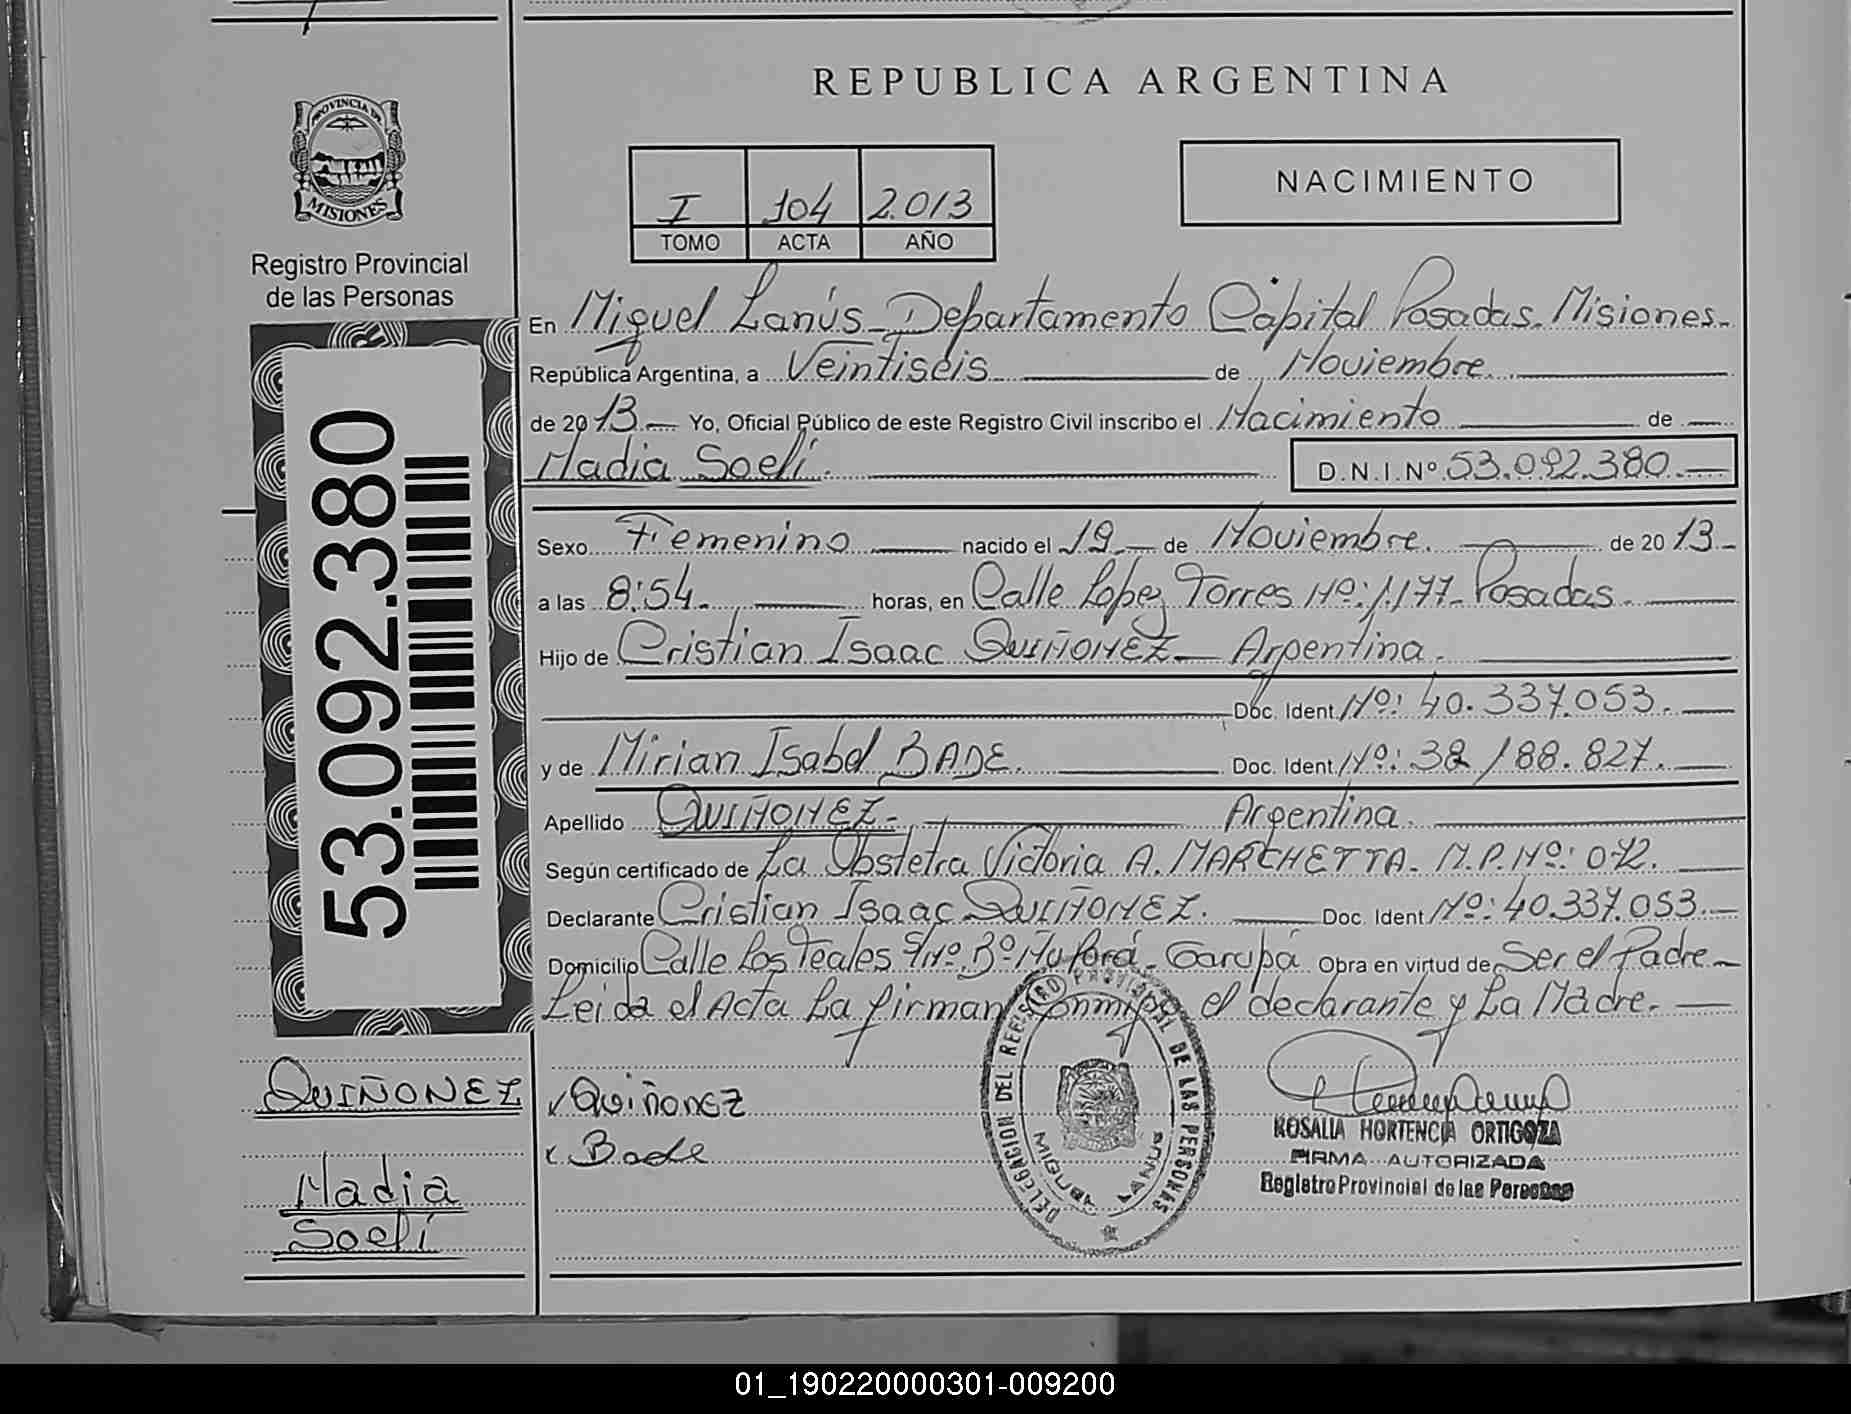 REPUBLICA ARGENTINA
PROVINCIA DE
MISIONES
Registro Provincial
de las Personas
I 104 2.013
TOMO ACTA AÑO
NACIMIENTO
53.092.380
En Miguel Lanús - Departamento Capital Posadas. Misiones.-
República Argentina, a Veintiseis de Noviembre.
de 2013.- Yo, Oficial Público de este Registro Civil inscribo el Nacimiento de
Nadia Soelí. D.N.I.Nº 53.092.380.-
Sexo Femenino nacido el 19 de Noviembre. de 2013-
a las 8:54. horas, en Calle Lopez Torres Nº: 1.177- Posadas.
Hijo de Cristian Isaac QUIÑONEZ - Argentina.
Doc. Ident. Nº: 40.337.053.
y de Mirian Isabel BADE. Doc. Ident. Nº: 38.188.827.
Apellido QUIÑONEZ- Argentina.
Según certificado de La Obstetra Victoria A. MARCHETTA. M.P. Nº:
Declarante Cristian Isaac QUIÑONEZ. Doc. Ident. Nº: 40.337.053.-
Domicilio Calle Los Teales S/Nº. Bº Ñu Porá - Garupá Obra en virtud de Ser el Padre.-
Leida el Acta La firman Conmigo el declarante y La Madre.
QUIÑONEZ
Nadia
Soelí
QuiñonEZ
Bade
DELEGACION DEL REGISTRO PROVINCIAL DE LAS PERSONAS
MIGUEL LANUS
ROSALIA HORTENCIA ORTIGOZA
FIRMA AUTORIZADA
Registro Provincial de las Personas
01_190220000301-009200